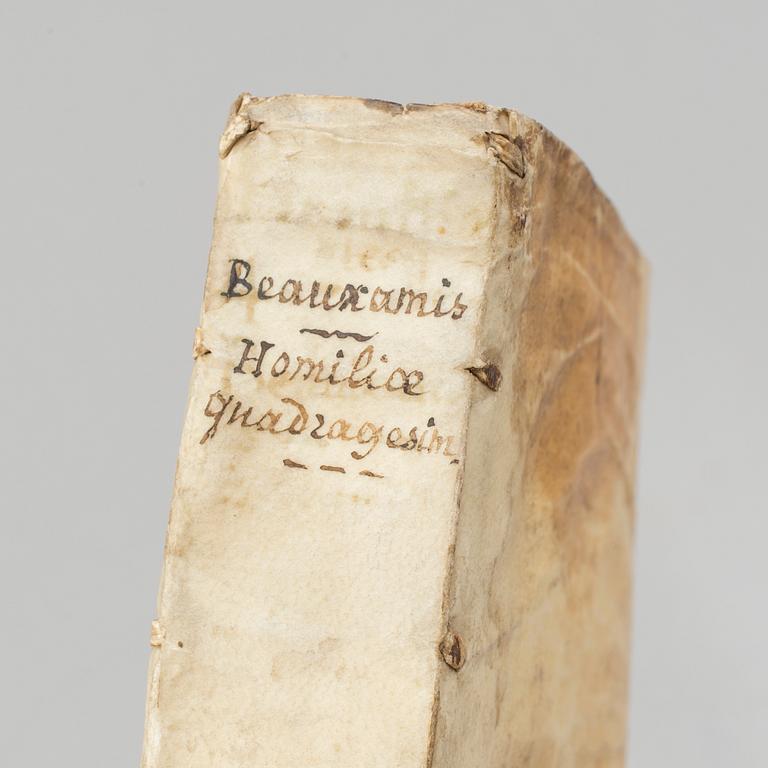 Beauxamis
Homiliæ
quadragesim.